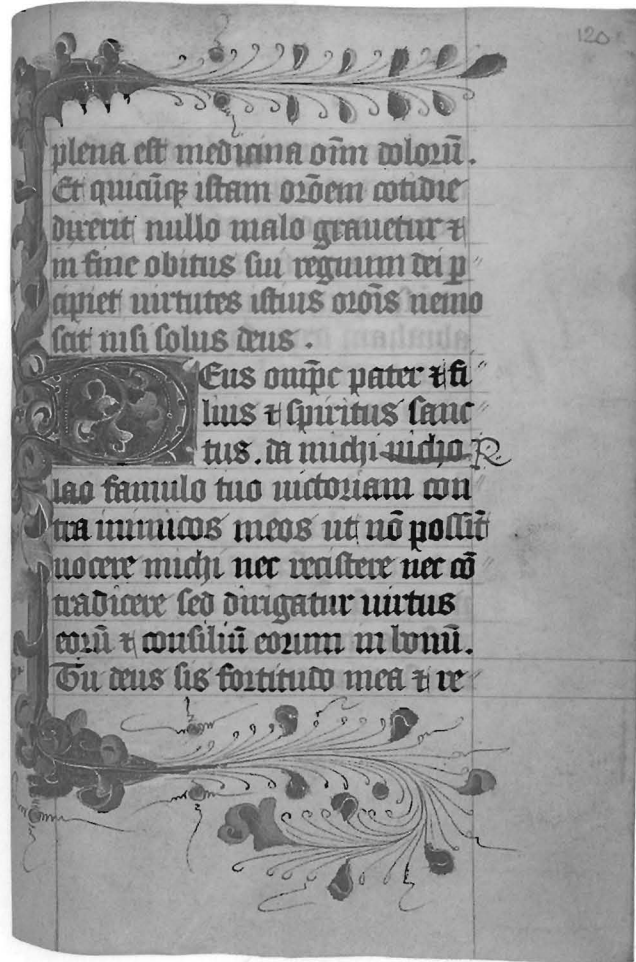 120
plena est medicina om̄m dolorū.
Et quicūqꝫ istam orōem cotidie
dixerit nullo malo grauetur ⁊
in fine obitus sui regnum dei p̄
cipiet uirtutes istius orōis nemo
scit nisi solus deus.
Deus omp̄c pater ⁊ fi
lius ⁊ spiritus sanc
tus. da michi nicho R
lao famulo tuo uictoriam con
tra inimicos meos ut nō possīt
nocere michi nec recistere nec cō
tradicere sed dirigatur uirtus
eorū ⁊ consiliū eorum in bonū.
Tu deus sis fortitudo mea ⁊ re